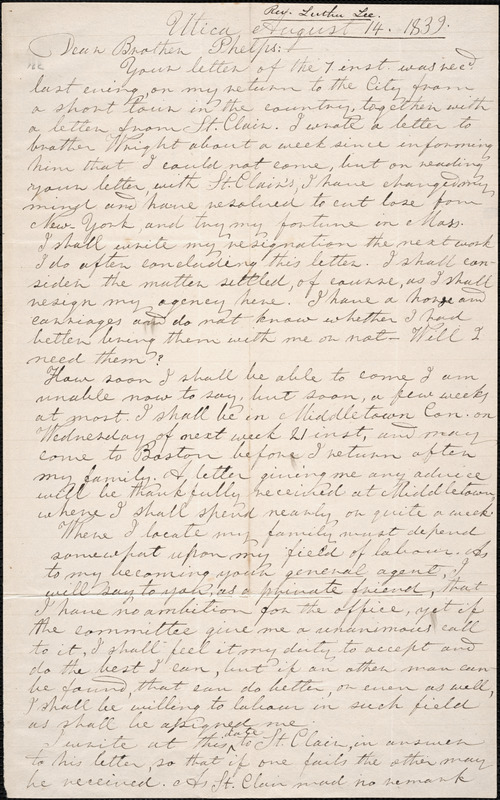 Rev. Luther Lee.
Utica August 14. 1839.
Dear Brother Phelps:
Your letter of the 7 inst was recd
last evning, on my return to the City from
a short tour in the country, together with
a letter from St. Clair. I wrote a letter to
brother Wright about a week since informing
him that I could not come, but on reading
your letter, with St. Clair's, I have changed my
mind and have resolved to cut lose from
New-York and try my fortune in Mass.
I shall write my resignation the next work
I do after concluding this letter. I shall con-
sider the matter settled, of course, as I shall
resign my agency here. I have a horse and
carriages and do not know whether I had
better bring them with me or not - Will I
need them?
How soon I shall be able to come I am
unable now to say, but soon, a few weeks
at most. I shall be in Middletown Con. on
Wednesday of next week 21 inst, and may
come to Boston before I return after
my family. A letter giving me any advice
will be thankfully received at Middletown
where I shall spend nearly or quite a week
Where I locate my family must depend
somewhat upon my field of labour. As
to my becoming your general agent, I
will say to you, as a private friend, that
I have no ambition for the office, yet if
the committee give me a unanimous call
to it, I shall feel it my duty to accept and
do the best I can, but if an other man can
be found that can do better, or even as well,
I shall be willing to labour in such field
as shall be assigned me.
I write at this date to St. Clair, in answer
to his letter, so that if one fails the other may
be received. As St. Clair mad no remark